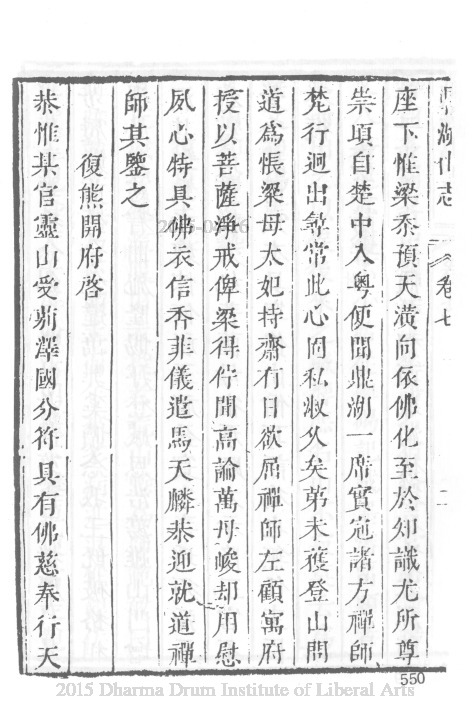 鼎湖山志 卷七 二
座下惟梁忝預天潢向依佛化至於知識尤所尊
崇項自楚中入粵便聞鼎湖一席實冠諸方禪師
梵行迥出尋常此心固私淑久矣第未獲登山問
道為悵梁母太妃持齋有日欲屈禪師左顧寓府
授以菩薩淨戒俾梁得侍聞高論萬毋峻却用慰
夙心特具佛衣信香菲儀遣馬天麟恭迎就道禪
師其鑒之
復熊開府啓
恭惟某官靈山受莂澤國分符具有佛慈奉行天
550
2015 Dharma Drum Institute of Liberal Arts